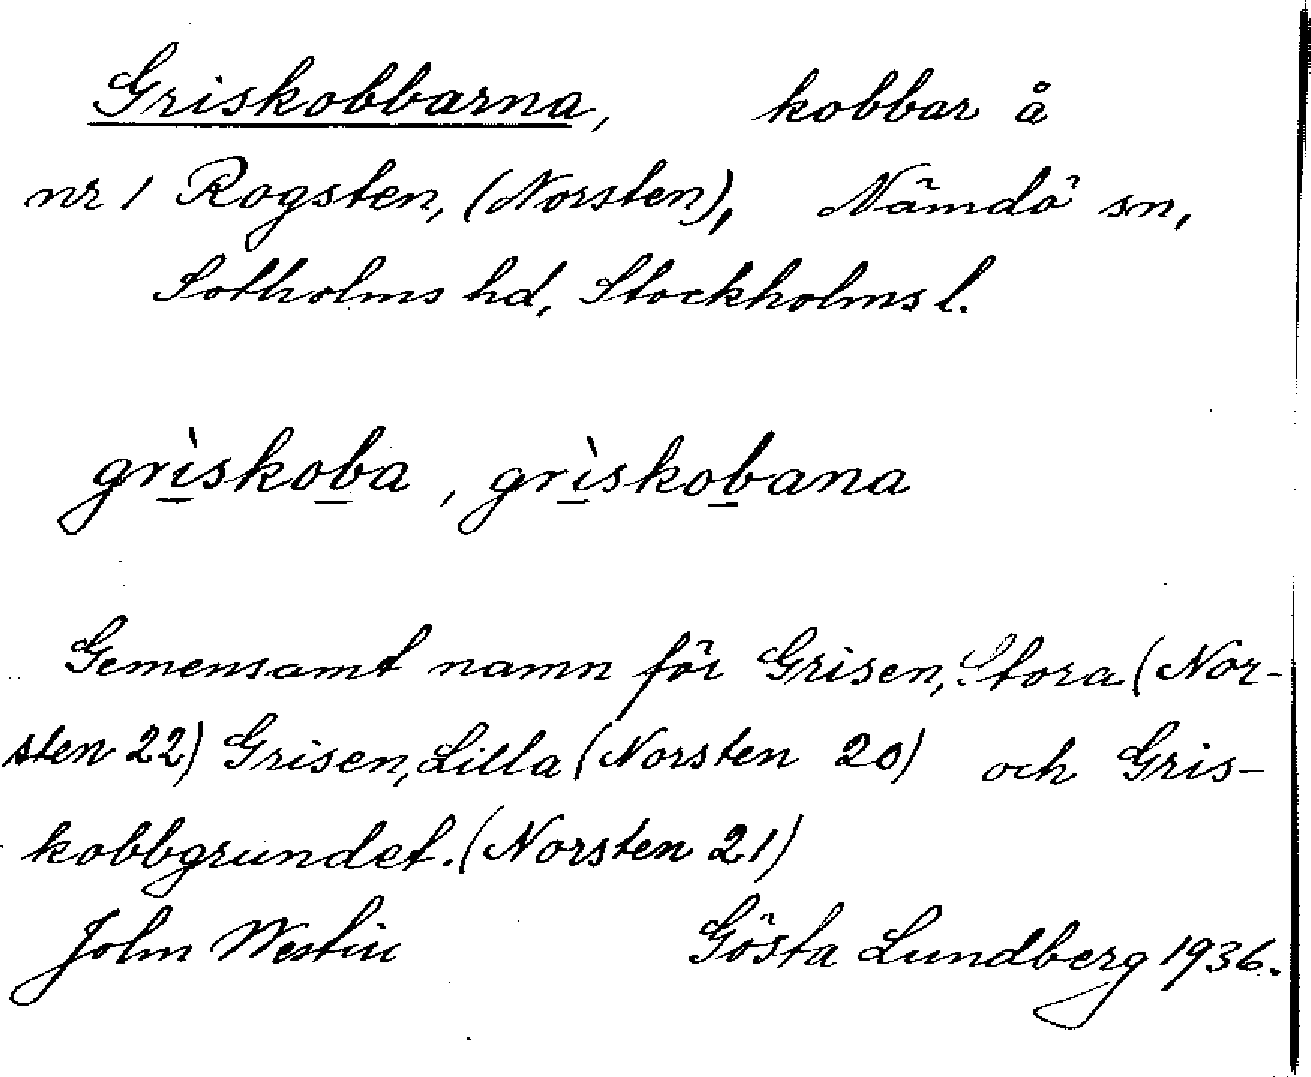 Griskobbarna, kobbar å
nr 1 Rogsten, (Norsten), Nämdö sn,
Sotholms hd, Stockholms l.
grìskoba, grìskobana
Gemensamt namn för Grisen, Stora (Nor-
sten 22) Grisen, Lilla (Norsten 20) och Gris-
kobbgrundet. (Norsten 21)
John Westin Gösta Lundberg 1936.